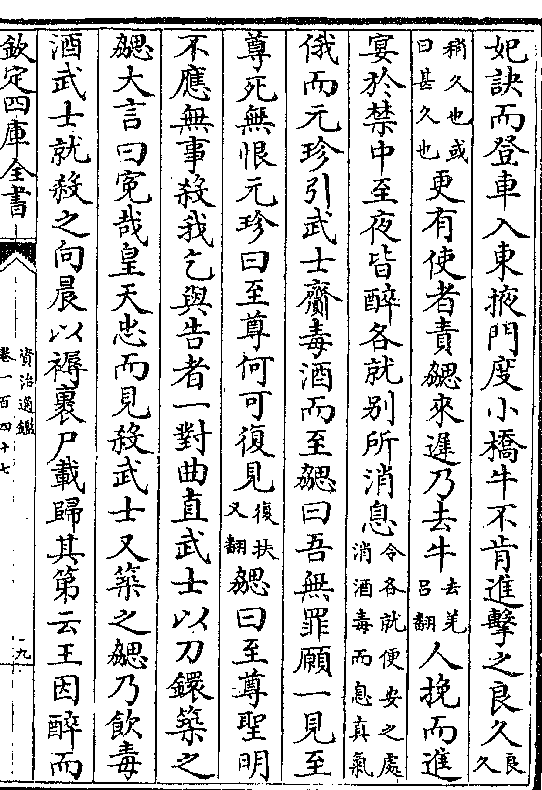 妃訣而登車入東掖門度小橋牛不肯進擊之良久良久
稍久也或曰甚久也更有使者責勰來遲乃去牛去羌呂翻人挽而進
宴於禁中至夜皆醉各就别所消息令各就便安之處消酒毒而息真氣
俄而元珍引武士齎毒酒而至勰曰吾無罪願一見至
尊死無恨元珍曰至尊何可復見復扶又翻勰曰至尊聖明
不應無事殺我乞與告者一對曲直武士以刀鐶築之
勰大言曰寃哉皇天忠而見殺武士又築之勰乃飲毒
酒武士就殺之向晨以褥裹尸載歸其第云王因醉而
欽定四庫全書
資治通鑑
卷一百四十七
十九